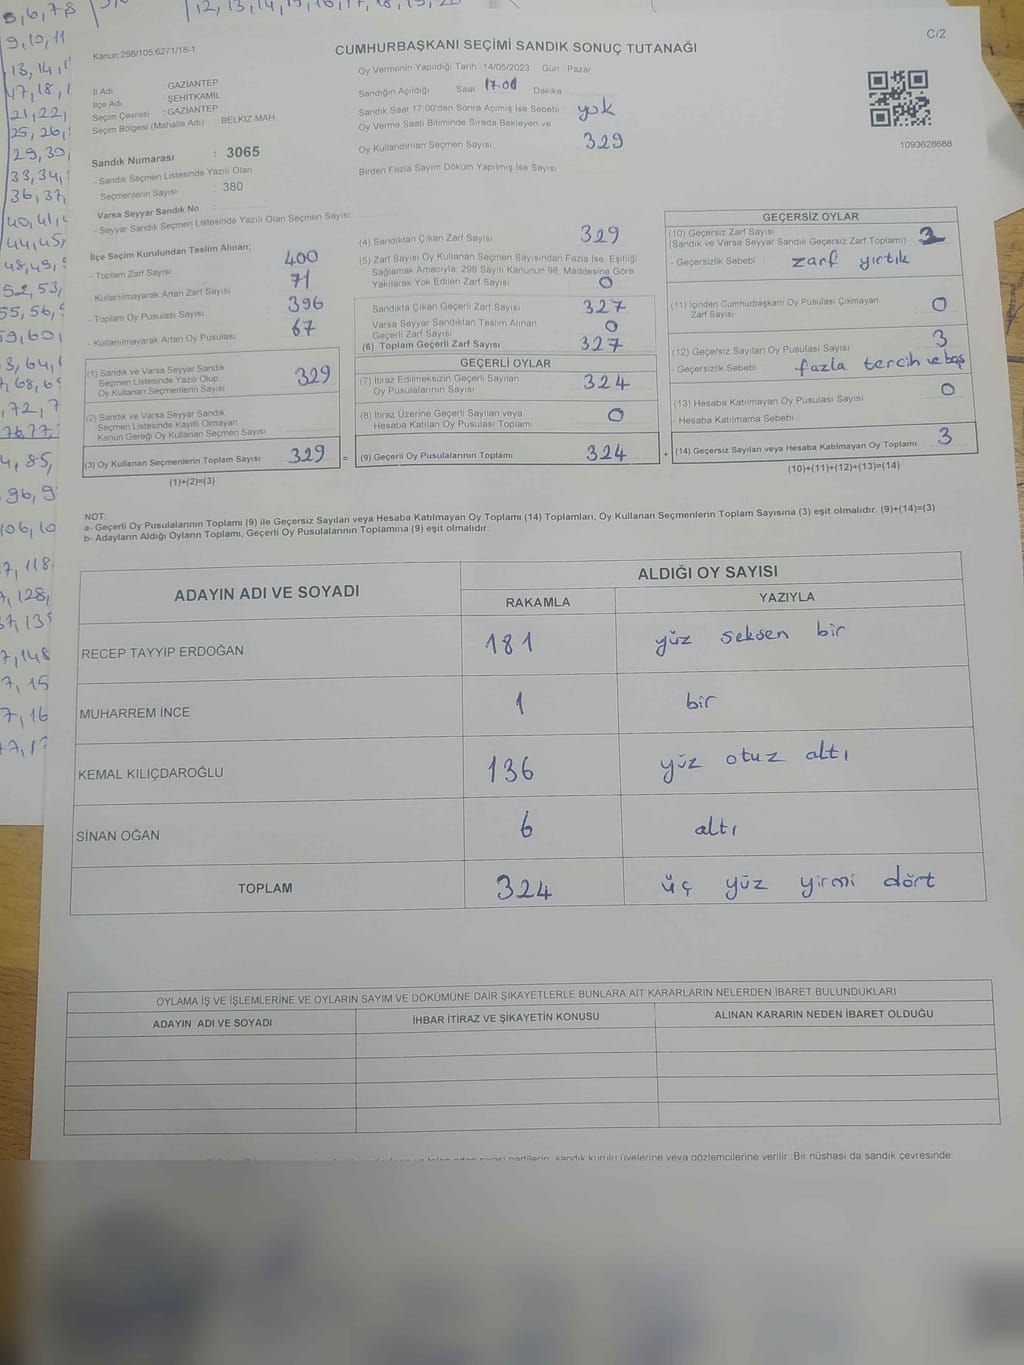 C/2
Kanun:298/105.6271/18-1
CUMHURBAŞKANI SEÇİMİ SANDIK SONUÇ TUTANAĞI
İl Adı : GAZİANTEP
İlçe Adı : ŞEHİTKAMİL
Seçim Çevresi : GAZİANTEP
Seçim Bölgesi (Mahalle Adı) : BELKIZ MAH.
Sandık Numarası : 3065
- Sandık Seçmen Listesinde Yazılı Olan
Seçmenlerin Sayısı : 380
Varsa Seyyar Sandık No :
- Seyyar Sandık Seçmen Listesinde Yazılı Olan Seçmen Sayısı:
Oy Vermenin Yapıldığı Tarih 14/05/2023 Gün : Pazar
Sandığın Açıldığı Saat 17:01 Dakika
Sandık Saat 17:00'den Sonra Açımış İse Sebebi yok
Oy Verme Saati Bitiminde Sırada Bekleyen ve
Oy Kullandırılan Seçmen Sayısı 329
Birden Fazla Sayım Döküm Yapılmış İse Sayısı
1093628688
İlçe Seçim Kurulundan Teslim Alınan;
- Toplam Zarf Sayısı 400
- Kullanılmayarak Artan Zarf Sayısı 71
- Toplam Oy Pusulası Sayısı 396
- Kullanılmayarak Artan Oy Pusulası 67
(1) Sandık ve Varsa Seyyar Sandık
Seçmen Listesinde Yazılı Olup
Oy Kullanan Seçmenlerin Sayısı 329
(2) Sandık ve Varsa Seyyar Sandık
Seçmen Listesinde Kayıtlı Olmayan
Kanun Gereği Oy Kullanan Seçmen Sayısı
(3) Oy Kullanan Seçmenlerin Toplam Sayısı 329 =
(1)+(2)=(3)
(4) Sandıktan Çıkan Zarf Sayısı 329
(5) Zarf Sayısı Oy Kullanan Seçmen Sayısından Fazla İse, Eşitliği
Sağlamak Amacıyla, 298 Sayılı Kanunun 98. Maddesine Göre
Yakılarak Yok Edilen Zarf Sayısı 0
Sandıkta Çıkan Geçerli Zarf Sayısı 327
Varsa Seyyar Sandıktan Teslim Alınan
Geçerli Zarf Sayısı 0
(6) Toplam Geçerli Zarf Sayısı 327
GEÇERLİ OYLAR
(7) İtiraz Edilmeksizin Geçerli Sayılan
Oy Pusulalarının Sayısı 324
(8) İtiraz Üzerine Geçerli Sayılan veya
Hesaba Katılan Oy Pusulası Toplamı 0
(9) Geçerli Oy Pusulalarının Toplamı 324 +
GEÇERSİZ OYLAR
(10) Geçersiz Zarf Sayısı
(Sandık ve Varsa Seyyar Sandık Geçersiz Zarf Toplamı)
- Geçersizlik Sebebi zarf yırtık
(11) İçinden Cumhurbaşkanı Oy Pusulası Çıkmayan
Zarf Sayısı 0
(12) Geçersiz Sayılan Oy Pusulası Sayısı 3
- Geçersizlik Sebebi fazla tercih ve boş
(13) Hesaba Katılmayan Oy Pusulası Sayısı 0
- Hesaba Katılmama Sebebi
(14) Geçersiz Sayılan veya Hesaba Katılmayan Oy Toplamı 3
(10)+(11)+(12)+(13)=(14)
NOT:
a- Geçerli Oy Pusulalarının Toplamı (9) ile Geçersiz Sayılan veya Hesaba Katılmayan Oy Toplamı (14) Toplamları, Oy Kullanan Seçmenlerin Toplam Sayısına (3) eşit olmalıdır. (9)+(14)=(3)
b- Adayların Aldığı Oyların Toplamı, Geçerli Oy Pusulalarının Toplamına (9) eşit olmalıdır.
ADAYIN ADI VE SOYADI
ALDIĞI OY SAYISI
RAKAMLA YAZIYLA
RECEP TAYYİP ERDOĞAN 181 yüz seksen bir
MUHARREM İNCE 1 bir
KEMAL KILIÇDAROĞLU 136 yüz otuz altı
SİNAN OĞAN 6 altı
TOPLAM 324 üç yüz yirmi dört
OYLAMA İŞ VE İŞLEMLERİNE VE OYLARIN SAYIM VE DÖKÜMÜNE DAİR ŞİKAYETLERLE BUNLARA AİT KARARLARIN NELERDEN İBARET BULUNDUKLARI
ADAYIN ADI VE SOYADI İHBAR İTİRAZ VE ŞİKAYETİN KONUSU ALINAN KARARIN NEDEN İBARET OLDUĞU
siyasi partilerin, sandık kurulu üyelerine veya gözlemcilerine verilir. Bir nüshası da sandık çevresinde